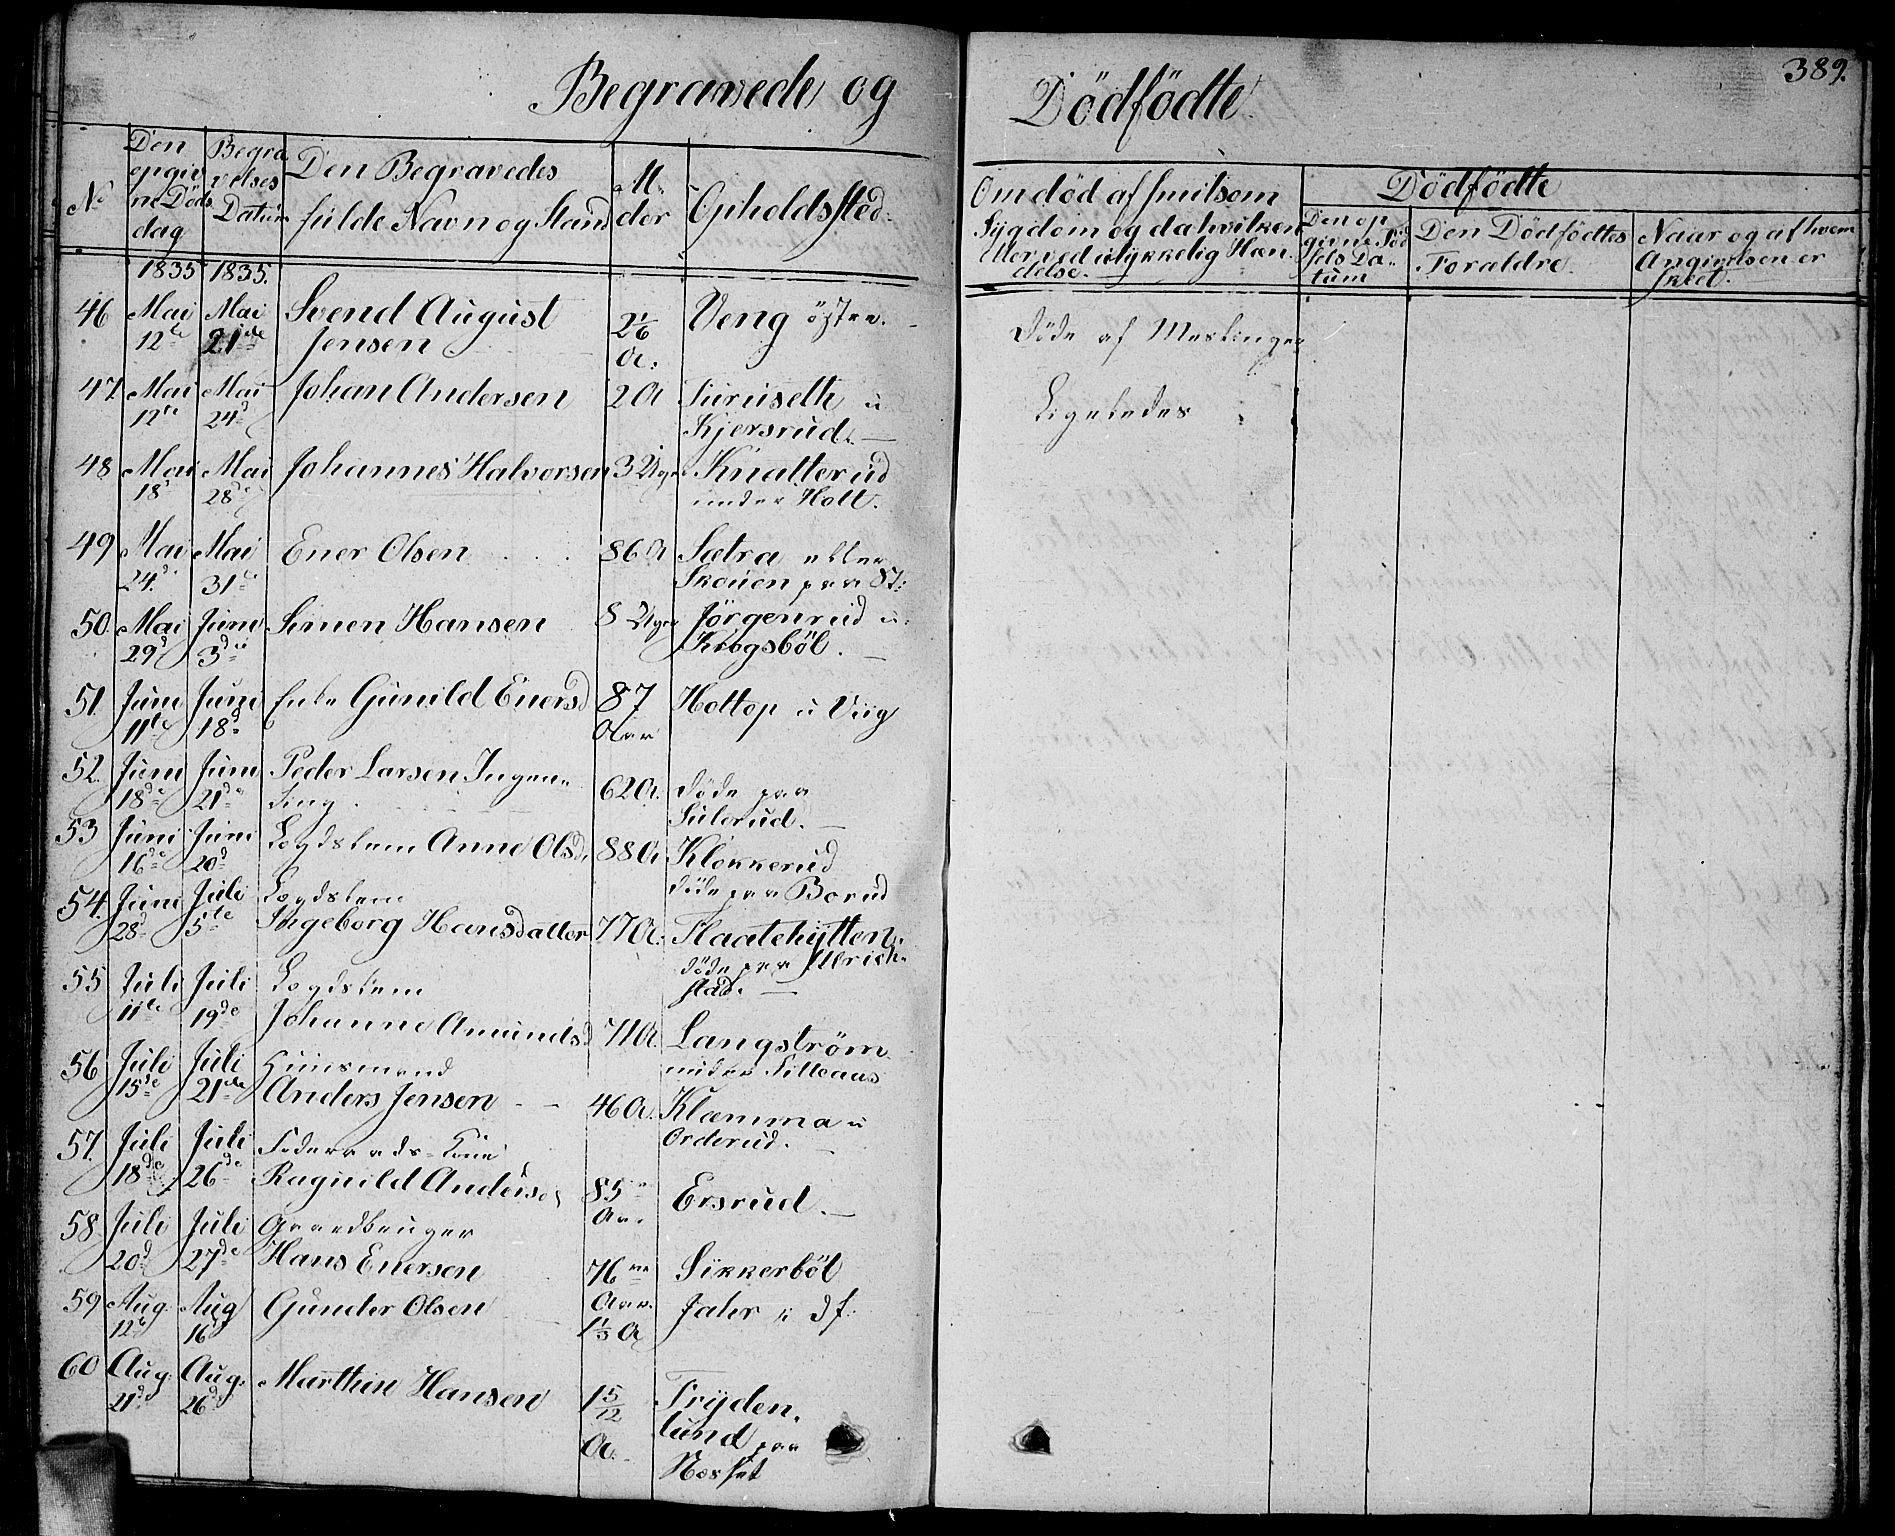 389.
Begravede og Dödfödte
No
Den opgivne Döds dag
Begravelses Datum
Den Begravedes fulde Navn og Stand
Alder
Opholdssted.
Om död af smitsom Sygdom og da hvilken Eller ved ulykkelig Hændelse.
Dödfödte
Den opgivne Födsels Datum
Den Dödfödtes Foraldre.
Naar og af hvem Angivelsen er skeet.
1835 1835.
46 Mai 12te Mai 21de Svend August Jensen 2 1/6 A: Veng östre. Döde af Meslinger
47 Mai 12te Mai 24d Johan Andersen 2 A Suruseth u Kjersrud. Ligeledes
48 Mai 18d Mai 28de Johannes Halvorsen 3 Uger Knatterud under Holt.
49 Mai 24d Mai 31te Ener Olsen 86 A Sætra eller Skouen paa
50. Mai 29d Juni 3die Simen Hansen 8 Uger Jörgenrud u: Krogsböl.
51. Juni 11te Juni 18d Enke Gunild Enersd 87 Aar Hottop u Viig
52. Juni 18de Juni 21de Peder Larsen Ingenting. 62 A. döde paa Sulerud.
53 Juni 16de Juni 20d Logdslem Anne Olsd. 88 A Klokkerud döde paa Borud
54. Juni 28d Juli 5te Logdslem Ingeborg Hansdatter 77 A: Flaatehytten. döde paa Ulrichstad.
55 Juli 11te Juli 19de Logdslem Johanne Amundsd 71 A. Langström under Titteaas
56 Juli 15de Juli 21de Huusmand Anders Jensen 46 A. Klemma u Orderud.
57. Juli 18de Juli 26de Föderaads-Kone Ragnild Andersd 85 Aar. Ersrud.
58. Juli 20d Juli 27de Gaardbruger Hans Enersen 76 Aar. Sikkerböl
59 Aug. 12te Aug 16d Gunder Olsen 1 1/3 A Jahr
60 Aug. 21d Aug. 26d Marthin Hansen 1 5/12 A. Frydenlund paa Næsset